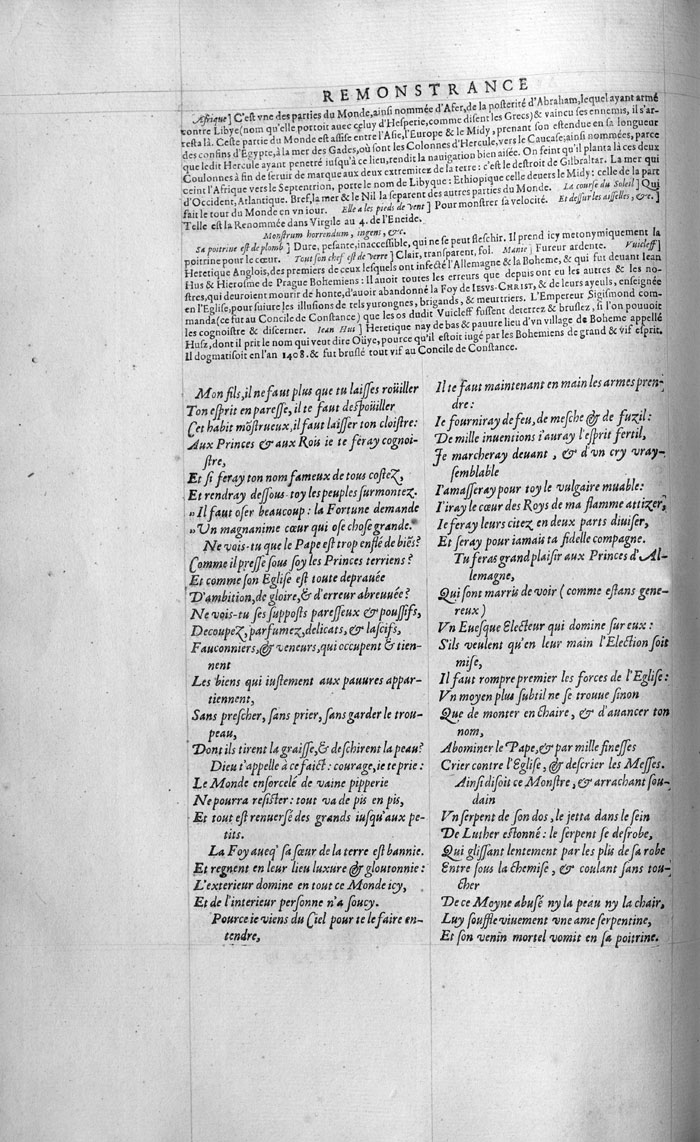 REMONSTRANCE
Afrique] C'est vne des parties du Monde, ainsi nommée d'Afer, de la posterité d'Abraham, lequel ayant armé
contre Libye (nom qu'elle portoit auec celuy d'Hesperie, comme disent les Grecs) & vaincu ses ennemis, il s'ar-
resta là. Ceste partie du Monde est assise entre l'Asie, l'Europe & le Midy, prenant son estendue en sa longueur
des confins d'Egypte, à la mer des Gades, où sont les Colonnes d'Hercule, vers le Caucase, ainsi nommées, parce
que ledit Hercule ayant penetré iusqu'à ce lieu, rendit la nauigation bien aisée. On feint qu'il planta là ces deux
Coulonnes à fin de seruir de marque aux deux extremitez de la terre: c'est le destroit de Gilbraltar. La mer qui
ceint l'Afrique vers le Septentrion, porte le nom de Libyque: Ethiopique celle deuers le Midy: celle de la part
d'Occident, Atlantique. Bref, la mer & le Nil la separent des autres parties du Monde. La course du Soleil] Qui
fait le tour du Monde en vn iour. Elle a les pieds de vent] Pour monstrer sa velocité. Et dessur les aisselles, &c.]
Telle est la Renommée dans Virgile au 4. de l'Eneide.
Monstrum horrendum, ingens, &c.
Sa poitrine est de plomb] Dure, pesante, inaccessible, qui ne se peut fleschir. Il prend icy metonymiquement la
poitrine pour le cœur. Tout son chef est de verre] Clair, transparent, fol. Manie] Fureur ardente. Vuicleff]
Heretique Anglois, des premiers de ceux lesquels ont infecté l'Allemagne & la Boheme, & qui fut deuant Iean
Hus & Hierosme de Prague Bohemiens: Il auoit toutes les erreurs que depuis ont eu les autres & les no-
stres, qui deuroient mourir de honte, d'auoir abandonné la Foy de IESVS-CHRIST, & de leurs ayeuls, enseignée
en l'Eglise, pour suiure les illusions de tels yurongnes, brigands, & meurtriers. L'Empereur Sigismond com-
manda (ce fut au Concile de Constance) que les os dudit Vuicleff fussent deterrez & bruslez, si l'on pouuoit
les cognoistre & discerner. Iean Hus] Heretique nay de bas & pauure lieu d'vn village de Boheme appellé
Husz, dont il prit le nom qui veut dire Oüye, pource qu'il estoit iugé par les Bohemiens de grand & vif esprit.
Il dogmatisoit en l'an 1408. & fut bruslé tout vif au Concile de Constance.
Mon fils, il ne faut plus que tu laisses roüiller
Ton esprit en paresse, il te faut despoüiller
Cet habit mõstrueux, il faut laisser ton cloistre:
Aux Princes & aux Rois ie te feray cognoi-
stre,
Et si feray ton nom fameux de tous costez,
Et rendray dessous-toy les peuples surmontez.
„Il faut oser beaucoup: la Fortune demande
„Vn magnanime cœur qui ose chose grande.
Ne vois-tu que le Pape est trop enflé de biẽs?
Comme il presse sous soy les Princes terriens?
Et comme son Eglise est toute deprauée
D'ambition, de gloire, & d'erreur abreuuée?
Ne vois-tu ses supposts paresseux & poussifs,
Decoupez, parfumez, delicats, & lascifs,
Fauconniers, & veneurs, qui occupent & tien-
nent
Les biens qui iustement aux pauures appar-
tiennent,
Sans prescher, sans prier, sans garder le trou-
peau,
Dont ils tirent la graisse, & deschirent la peau?
Dieu t'appelle à ce faict: courage, ie te prie:
Le Monde ensorcelé de vaine pipperie
Ne pourra resister: tout va de pis en pis,
Et tout est renuersé des grands iusqu'aux pe-
tits.
La Foy aueq' sa sœur de la terre est bannie.
Et regnent en leur lieu luxure & gloutonnie:
L'exterieur domine en tout ce Monde icy,
Et de l'interieur personne n'a soucy.
Pource ie viens du Ciel pour te le faire en-
tendre,
Il te faut maintenant en main les armes pren-
dre:
Ie fourniray de feu, de mesche & de fuzil:
De mille inuentions i'auray l'esprit fertil,
Je marcheray deuant, & d'vn cry vray-
semblable
I'amasseray pour toy le vulgaire muable:
I'iray le cœur des Roys de ma flamme attizer,
Ie feray leurs citez en deux parts diuiser,
Et seray pour iamais ta fidelle compagne.
Tu feras grand plaisir aux Princes d'Al-
lemagne,
Qui sont marris de voir (comme estans gene-
reux)
Vn Euesque Electeur qui domine sur eux:
S'ils veulent qu'en leur main l'Election soit
mise,
Il faut rompre premier les forces de l'Eglise:
Vn moyen plus subtil ne se trouue sinon
Que de monter en chaire, & d'auancer ton
nom,
Abominer le Pape, & par mille finesses
Crier contre l'Eglise, & descrier les Messes.
Ainsi disoit ce Monstre, & arrachant sou-
dain
Vn serpent de son dos, le jetta dans le sein
De Luther estonné: le serpent se desrobe,
Qui glissant lentement par les plis de sa robe
Entre sous la chemise, & coulant sans tou-
cher
De ce Moyne abusé ny la peau ny la chair,
Luy souffle viuement vne ame serpentine,
Et son venin mortel vomit en sa poitrine.